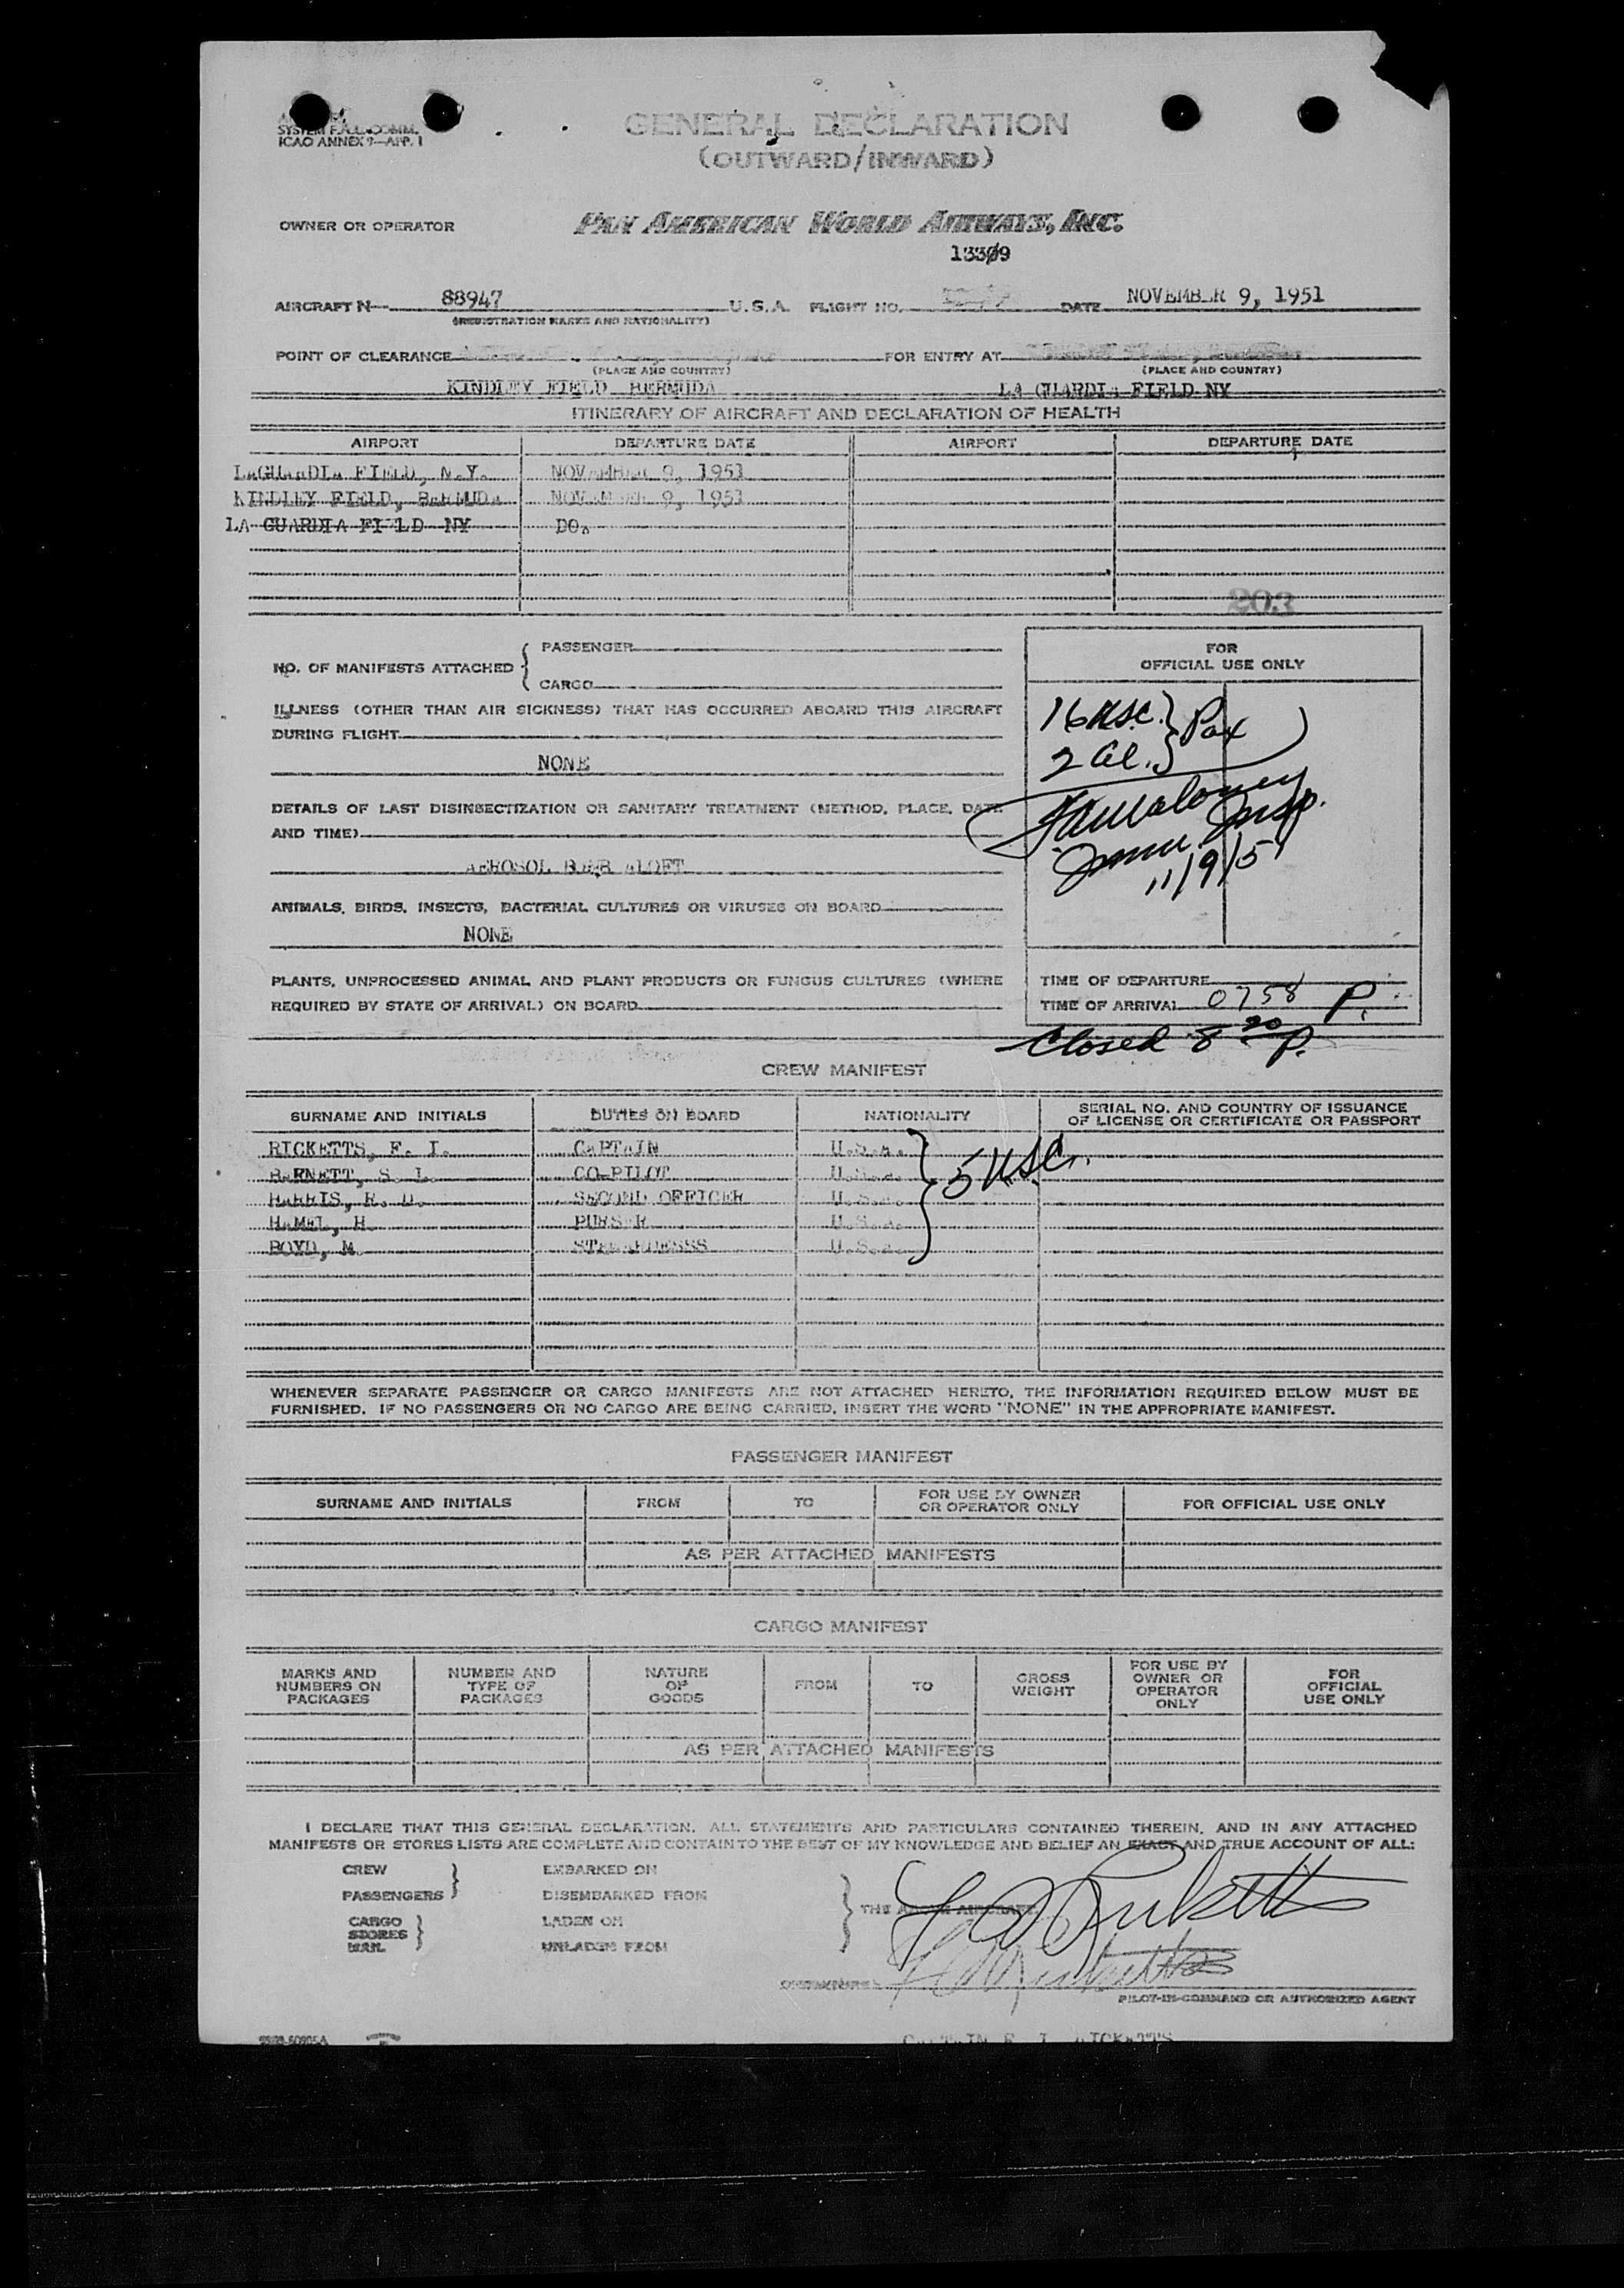 SYSTEM F.A.L. COMM.
ICAO ANNEX 9—APP. 1
GENERAL DECLARATION
(OUTWARD/INWARD)
OWNER OR OPERATOR PAN AMERICAN WORLD AIRWAYS, INC.
13309
AIRCRAFT N— 88947 U.S.A. FLIGHT NO. DATE NOVEMBER 9, 1951
(REGISTRATION MARKS AND NATIONALITY)
POINT OF CLEARANCE FOR ENTRY AT
(PLACE AND COUNTRY) (PLACE AND COUNTRY)
KINDLEY FIELD BERMUDA LA GUARDIA FIELD NY
ITINERARY OF AIRCRAFT AND DECLARATION OF HEALTH
AIRPORT DEPARTURE DATE AIRPORT DEPARTURE DATE
LAGUARDIA FIELD, N.Y. NOVEMBER 9, 1951
KINDLEY FIELD, BERMUDA NOVEMBER 9, 1951
LA GUARDIA FIELD NY DO.
203
NO. OF MANIFESTS ATTACHED { PASSENGER
CARGO
FOR
OFFICIAL USE ONLY
ILLNESS (OTHER THAN AIR SICKNESS) THAT HAS OCCURRED ABOARD THIS AIRCRAFT
DURING FLIGHT
NONE
16 USC. } Pax
2 al.
DETAILS OF LAST DISINSECTIZATION OR SANITARY TREATMENT (METHOD, PLACE, DATE
AND TIME)
AEROSOL BOMB ALOFT
Imm Insp.
11/9/51
ANIMALS, BIRDS, INSECTS, BACTERIAL CULTURES OR VIRUSES ON BOARD
NONE
PLANTS, UNPROCESSED ANIMAL AND PLANT PRODUCTS OR FUNGUS CULTURES (WHERE
REQUIRED BY STATE OF ARRIVAL) ON BOARD
TIME OF DEPARTURE
TIME OF ARRIVAL 0758 P.
Closed 8 20 P.
CREW MANIFEST
SURNAME AND INITIALS DUTIES ON BOARD NATIONALITY SERIAL NO. AND COUNTRY OF ISSUANCE
OF LICENSE OR CERTIFICATE OR PASSPORT
RICKETTS, F. I. CAPTAIN U.S.A.
BARNETT, S. L. CO-PILOT U.S.A.
HARRIS, R. D. SECOND OFFICER U.S.A.
HAMEL, H. PURSER U.S.A.
BOYD, M. STEWARDESSS U.S.A.
} 5 USC.
WHENEVER SEPARATE PASSENGER OR CARGO MANIFESTS ARE NOT ATTACHED HERETO, THE INFORMATION REQUIRED BELOW MUST BE
FURNISHED. IF NO PASSENGERS OR NO CARGO ARE BEING CARRIED, INSERT THE WORD "NONE" IN THE APPROPRIATE MANIFEST.
PASSENGER MANIFEST
SURNAME AND INITIALS FROM TO FOR USE BY OWNER
OR OPERATOR ONLY FOR OFFICIAL USE ONLY
AS PER ATTACHED MANIFESTS
CARGO MANIFEST
MARKS AND
NUMBERS ON
PACKAGES NUMBER AND
TYPE OF
PACKAGES NATURE
OF
GOODS FROM TO GROSS
WEIGHT FOR USE BY
OWNER OR
OPERATOR
ONLY FOR
OFFICIAL
USE ONLY
AS PER ATTACHED MANIFESTS
I DECLARE THAT THIS GENERAL DECLARATION, ALL STATEMENTS AND PARTICULARS CONTAINED THEREIN, AND IN ANY ATTACHED
MANIFESTS OR STORES LISTS ARE COMPLETE AND CONTAIN TO THE BEST OF MY KNOWLEDGE AND BELIEF AN EXACT AND TRUE ACCOUNT OF ALL:
CREW EMBARKED ON
PASSENGERS } DISEMBARKED FROM
THE ABOVE AIRCRAFT
CARGO LADEN ON
STORES }
MAIL UNLADEN FROM
PILOT-IN-COMMAND OR AUTHORIZED AGENT
CAPTAIN F. I. RICKETTS